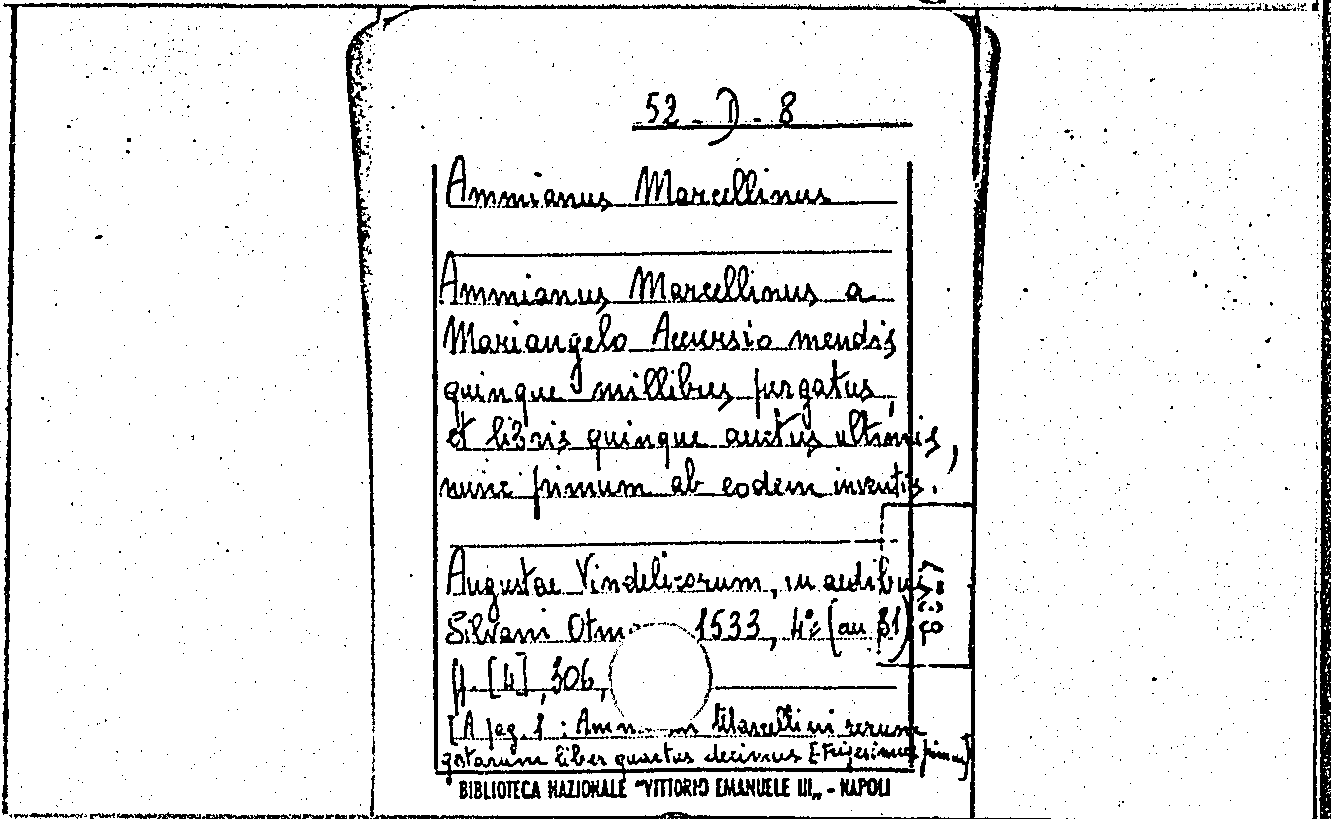 52 - D - 8
Ammianus Marcellinus
Ammianus Marcellinus a
Mariangelo Accursio mendis
quinque millibus purgatus,
et libris quinque auctus ultimis,
nunc primum ab eodem inventis.
Augustae Vindelicorum, in aedibus
Silvani Otma 1533, 4° (au 31)
ff. [4], 306,
[A pag. 1 : Am Marcellini rerum
gestarum liber quartus decimus [-Trigesimus primus]
BIBLIOTECA NAZIONALE "VITTORIO EMANUELE III„ - NAPOLI